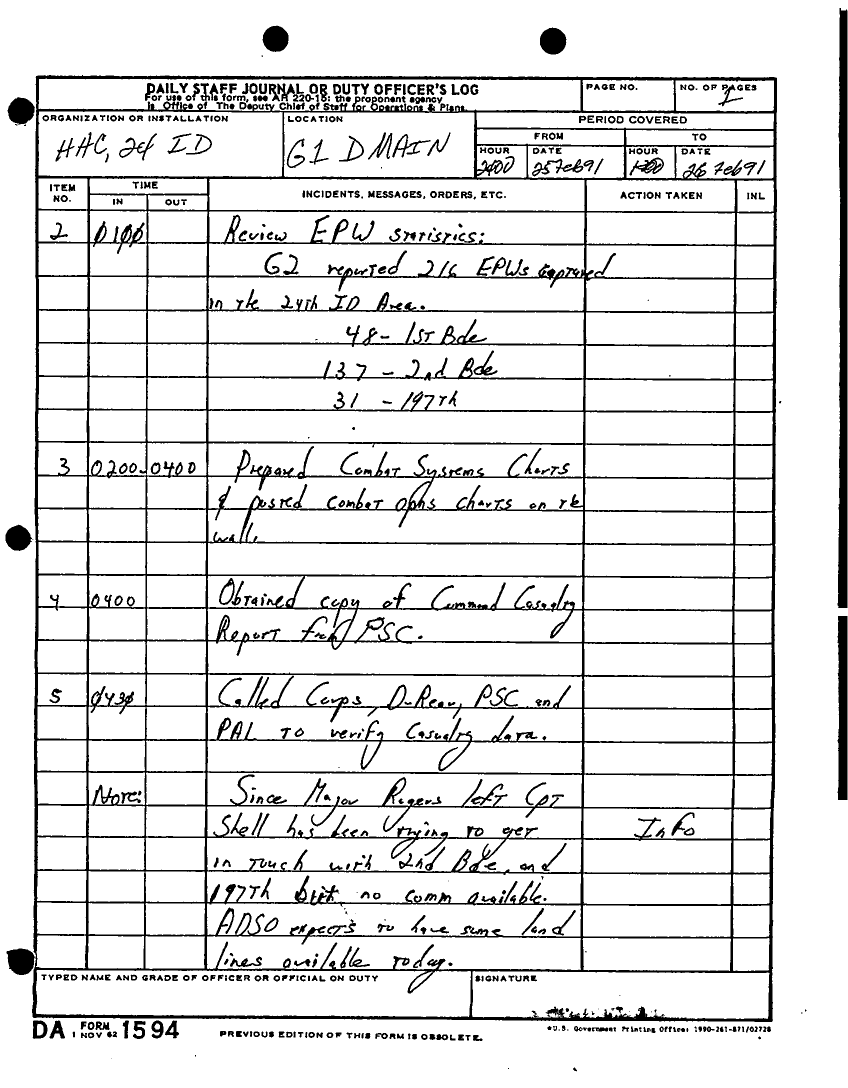 DAILY STAFF JOURNAL OR DUTY OFFICER'S LOG
For use of this form, see AR 220-15; the proponent agency
is Office of The Deputy Chief of Staff for Operations & Plans.
PAGE NO.
NO. OF PAGES
ORGANIZATION OR INSTALLATION
HHC, 24 ID
LOCATION
G1 D MAIN
PERIOD COVERED
FROM
TO
HOUR
DATE
HOUR
DATE
2400
25 Feb 91
1200
26 Feb 91
ITEM NO.
TIME
IN
OUT
INCIDENTS, MESSAGES, ORDERS, ETC.
ACTION TAKEN
INL
2 0100 Review EPW statistics:
G2 reported 216 EPWs captured
in the 24th ID Area.
48 - 1st Bde
137 - 2nd Bde
31 - 197th
3 0200-0400 Prepared Combat Systems Charts
& posted combat opns charts on the
wall.
4 0400 Obtained copy of Command Casualty
Report from PSC.
5 0430 Called Corps, D-Rear, PSC and
PAL to verify Casualty data.
Note: Since Major Rogers left Cpt
Shell has been trying to get Info
in touch with 2nd Bde, and
197th but no comm available.
ADSO expects to have some land
lines available today.
TYPED NAME AND GRADE OF OFFICER OR OFFICIAL ON DUTY
SIGNATURE
DA FORM 1 NOV 62 1594
PREVIOUS EDITION OF THIS FORM IS OBSOLETE.
*U.S. Government Printing Office: 1990-261-871/02728